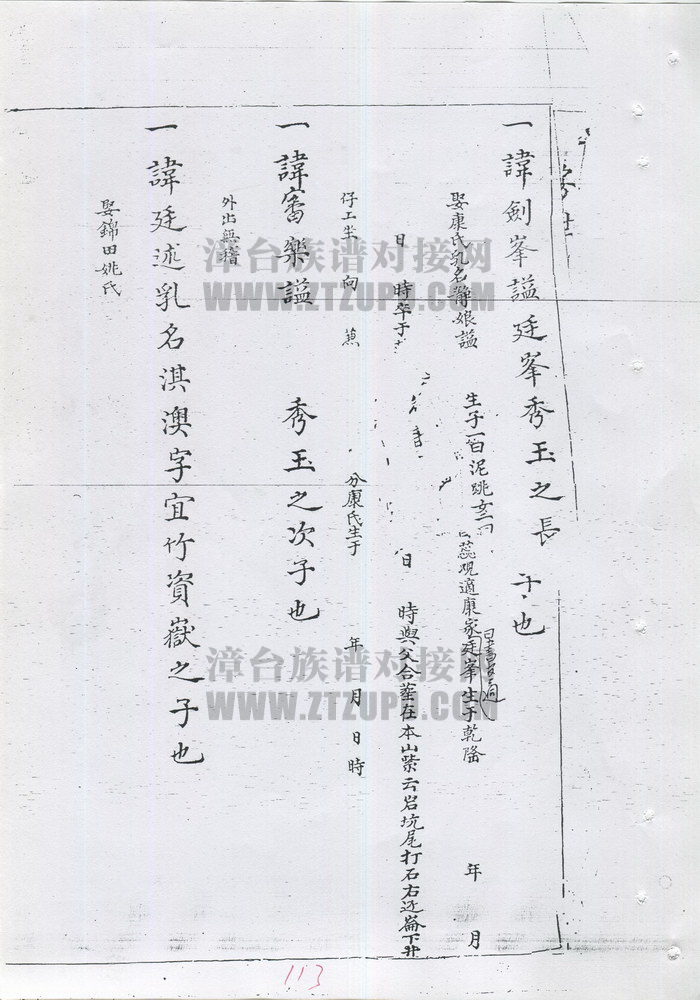 一諱劍峯謚廷峯秀玉之長子也
娶康氏乳名靜娘謚 生于 觀適康家廷峯生于乾隆 年 月
日 時卒于 日 時與父合塟在本山紫云岩坑尾打石右近崙下
仔工坐 向 兼 分康氏生于 年 月 日 時
一諱審樂謚 秀玉之次子也
外出無稽
一諱廷述乳名淇澳字宜竹資嶽之子也
娶錦田姚氏
漳台族谱对接网
WWW.ZTZUPU.COM
漳台族谱对接网
WWW.ZTZUPU.COM
113